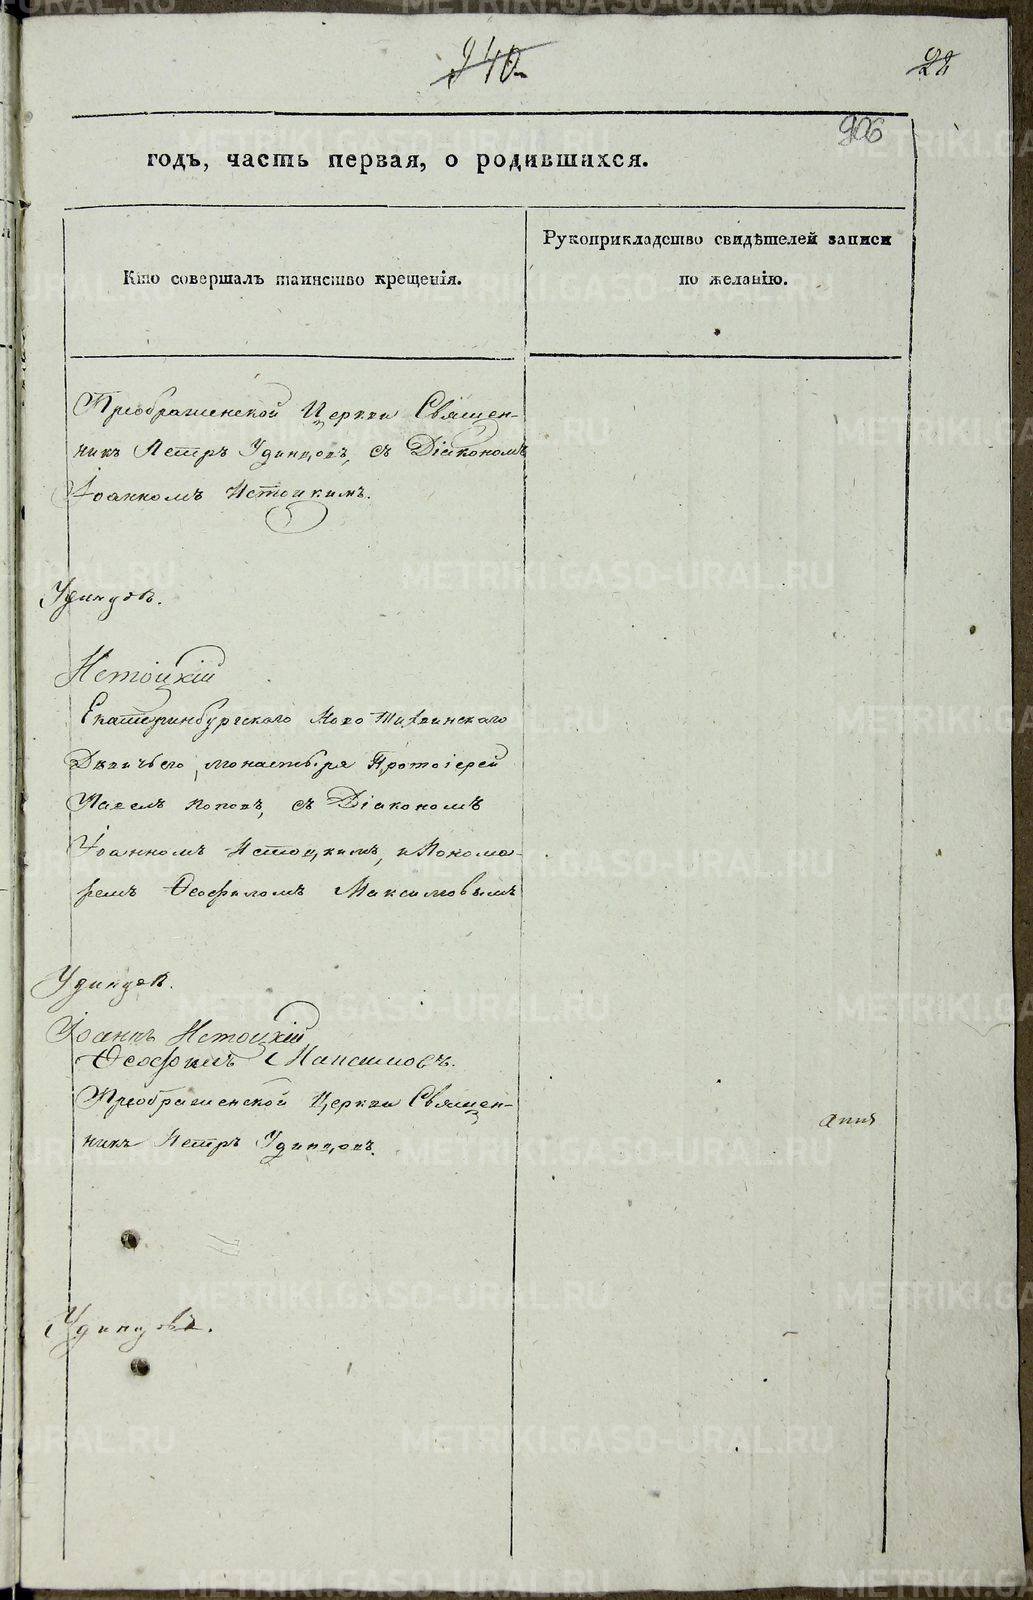 340
22
906
годъ, часть первая, о родившихся.
Кто совершалъ таинство крещенія.
Рукоприкладство свидѣтелей записи
по желанію.
Преображенской Церкви Священ-
никъ Петръ Удинцовъ, съ Діякономъ
Іоанномъ Истоцкимъ.
Удинцовъ.
Истоцкій
Екатеринбургскаго Ново Тихвинскаго
Дѣвичьего монастыря Протоіерей
Павелъ Поповъ, съ Діакономъ
Іоанномъ Истоцкимъ, и Понома-
ремъ Ѳеофиломъ Максимовымъ
Удинцовъ.
Іоаннъ Истоцкій
Ѳеофилъ Максимовъ.
Преображенской Церкви Священ-
никъ Петръ Удинцовъ.
Удинцовъ.
METRIKI.GASO-URAL.RU